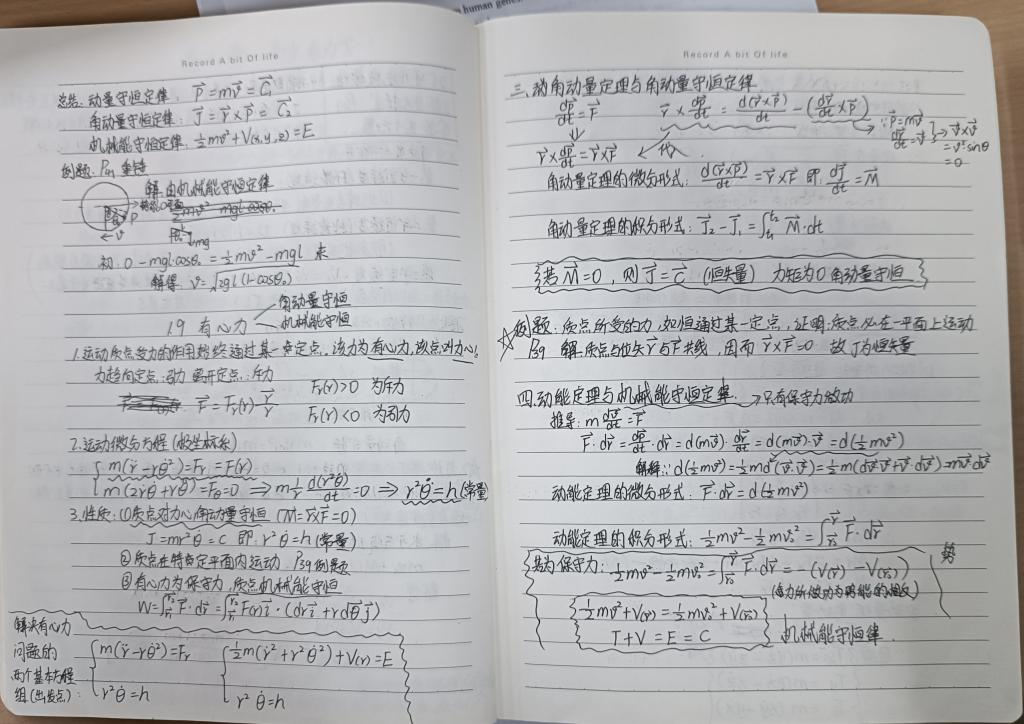 n human genes
Record A bit Of life
总结:动量守恒定律: P⃗=mv⃗=C⃗₁
角动量守恒定律: J⃗=r⃗×P⃗=C⃗₂
机械能守恒定律: ½mv²+V(x,y,z)=E
例题: P41 重锤
解:由机械能守恒定律
P
mg
初: 0-mgl·cosθ₀=½mv²-mgl 末
解得 v=√2gl(1-cosθ₀)
1.9 有心力
角动量守恒
机械能守恒
1.运动质点受力的作用始终通过某一定点,该力为有心力,该点为力心。
力趋向定点:引力 离开定点:斥力
F⃗=Fᵣ(r)·r⃗/r
Fᵣ(r)>0 为斥力
Fᵣ(r)<0 为引力
2.运动微分方程(极坐标系)
m(r̈-rθ̇²)=Fᵣ=F(r)
m(2ṙθ̇+rθ̈)=F_θ=0 ⇒ m·1/r·d(r²θ̇)/dt=0 ⇒ r²θ̇=h(常量)
3.性质:①质点对力心角动量守恒 (M⃗=r⃗×F⃗=0)
J=mr²θ̇=C 即: r²θ̇=h (常量)
②质点在特定平面内运动. P39例题
③有心力为保守力,质点机械能守恒
W=∫F⃗·dr⃗=∫F(r)i⃗·(dri⃗+rdθj⃗)
解决有心力
问题的
两个基本方程
组(出发点):
m(r̈-rθ̇²)=Fᵣ
r²θ̇=h
½m(ṙ²+r²θ̇²)+V(r)=E
r²θ̇=h
Record A bit Of life
三、角动量定理与角动量守恒定律
dp⃗/dt=F⃗
r⃗×dp⃗/dt=d(r⃗×p⃗)/dt-(dr⃗/dt×p⃗)
∵p⃗=mv⃗
dr⃗/dt=v⃗
→v⃗×v⃗
=v²sinθ
=0
r⃗×dp⃗/dt=r⃗×F⃗
代入
角动量定理的微分形式: d(r⃗×p⃗)/dt=r⃗×F⃗ 即: dJ⃗/dt=M⃗
角动量定理的积分形式: J⃗₂-J⃗₁=∫M⃗·dt
若M⃗=0,则J⃗=c⃗ (恒矢量) 力矩为0角动量守恒
☆例题:质点所受的力,如恒通过某一定点,证明:质点必在一平面上运动
P39 解:质点与位矢r⃗与F⃗共线,因而r⃗×F⃗=0 故J为恒矢量
四.动能定理与机械能守恒定律.→只有保守力做功
推导: m dv⃗/dt=F⃗
F⃗·dr⃗=dp⃗/dt·dr⃗=d(mv⃗)·dr⃗/dt=d(mv⃗)·v⃗=d(½mv²)
解释:∵d(½mv²)=½md(v⃗·v⃗)=½m(dv⃗·v⃗+v⃗·dv⃗)=mv⃗·dv⃗
动能定理的微分形式: F⃗·dr⃗=d(½mv²)
动能定理的积分形式: ½mv²-½mv₀²=∫F⃗·dr⃗
势
若为保守力: ½mv²-½mv₀²=∫F⃗·dr⃗=-(V(r)-V(r₀))
½mv²+V(r)=½mv₀²+V(r₀)
T+V=E=C
机械能守恒律.